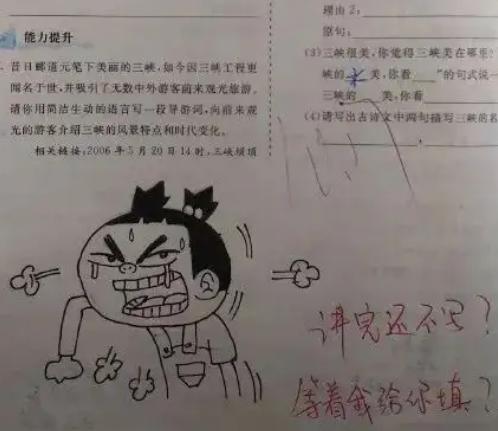 能力提升
昔日郦道元笔下美丽的三峡,如今因三峡工程更
闻名于世,并吸引了无数中外游客前来观光旅游。
请你用简洁生动的语言写一段导游词,向前来观
光的游客介绍三峡的风景特点和时代变化。
相关链接:2006年5月20日14时,三峡坝顶
理由2:
原句:
(3)三峡很美,你觉得三峡美在哪里?
峡的 水 美,你看 ”的句式说一
三峡的 美,你看
(4)请写出古诗文中两句描写三峡的名
讲完还不写?
等着我给你填?